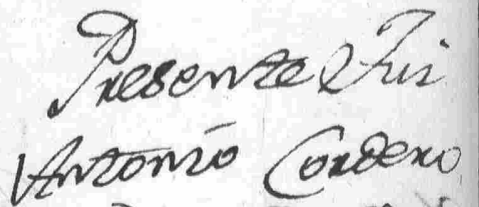 Presente Fui
Antonio Cordero